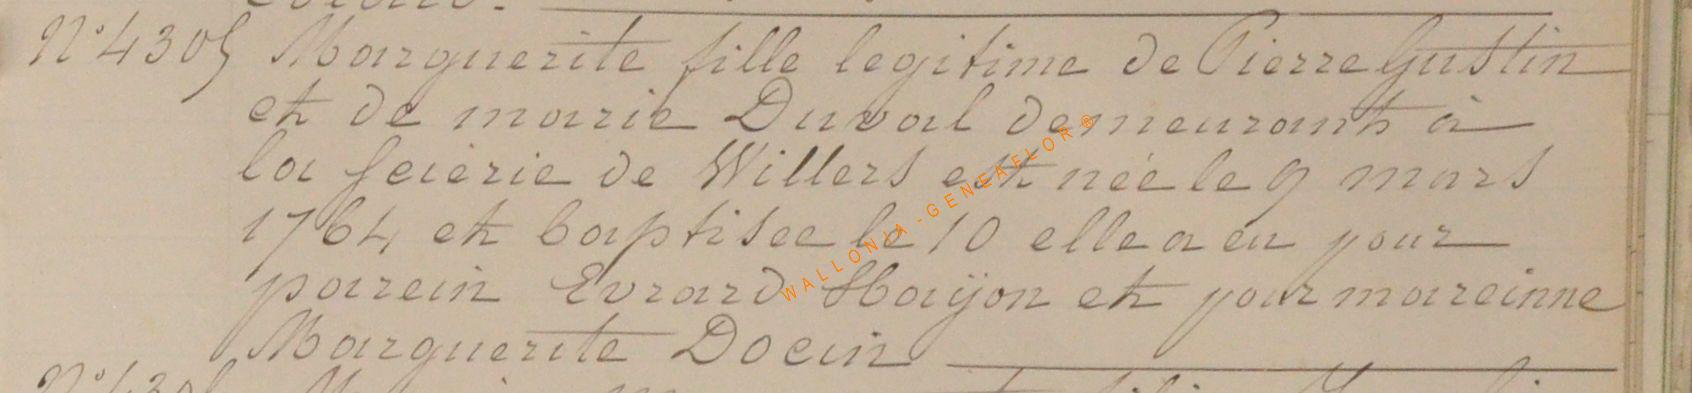 N° 4305 Marguerite fille legitime de Pierre Gustin
et de marie Duval demeurant à
la scierie de Willers est née le 9 mars
1764 et baptisee le 10 elle a eu pour
parein Evrard Haÿon et pour mareinne
Marguerite Docin
WALLONIA-GENEAFLOR®